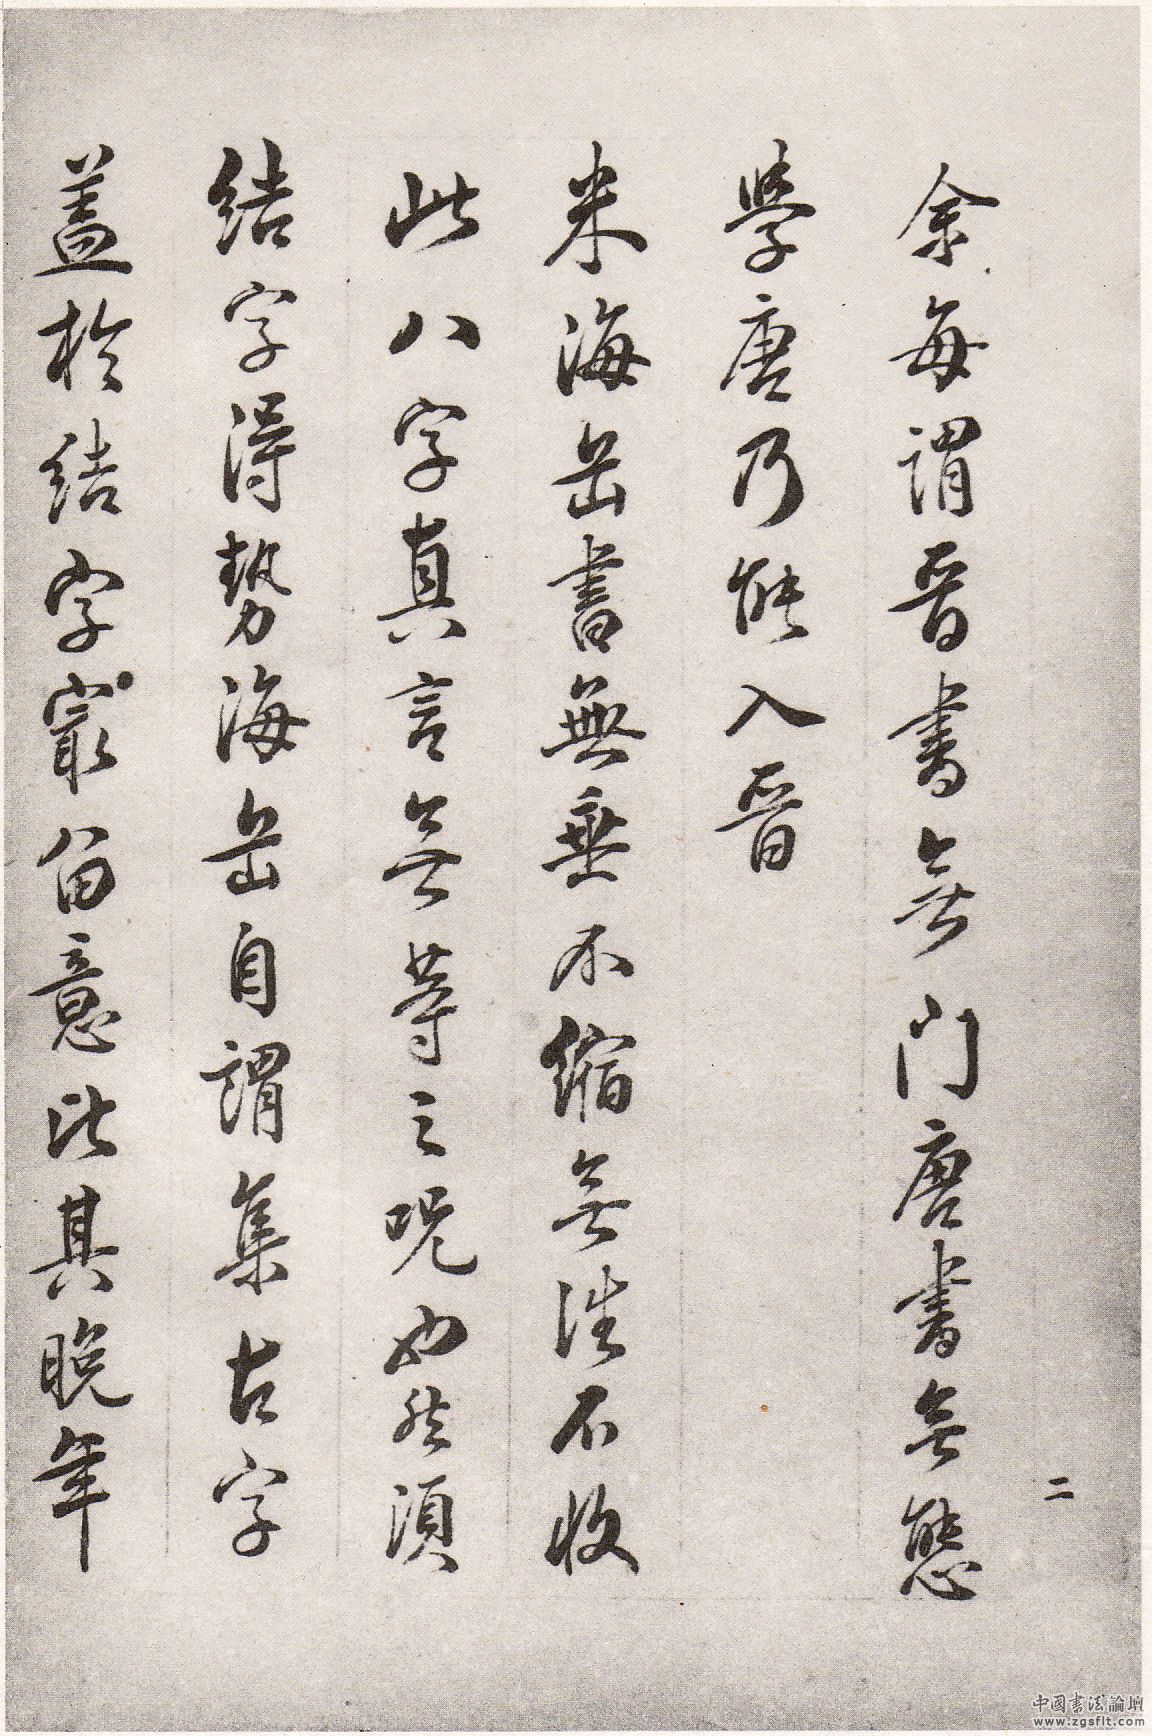 二
余每謂晋書無門唐書無態
學唐乃能入晋
米海岳書無垂不縮無往不收
此八字真言無等之呪也然須
結字得勢海岳自謂集古字
蓋於結字㝡留意比其晚年
中國書法論壇
www.zgsflt.com